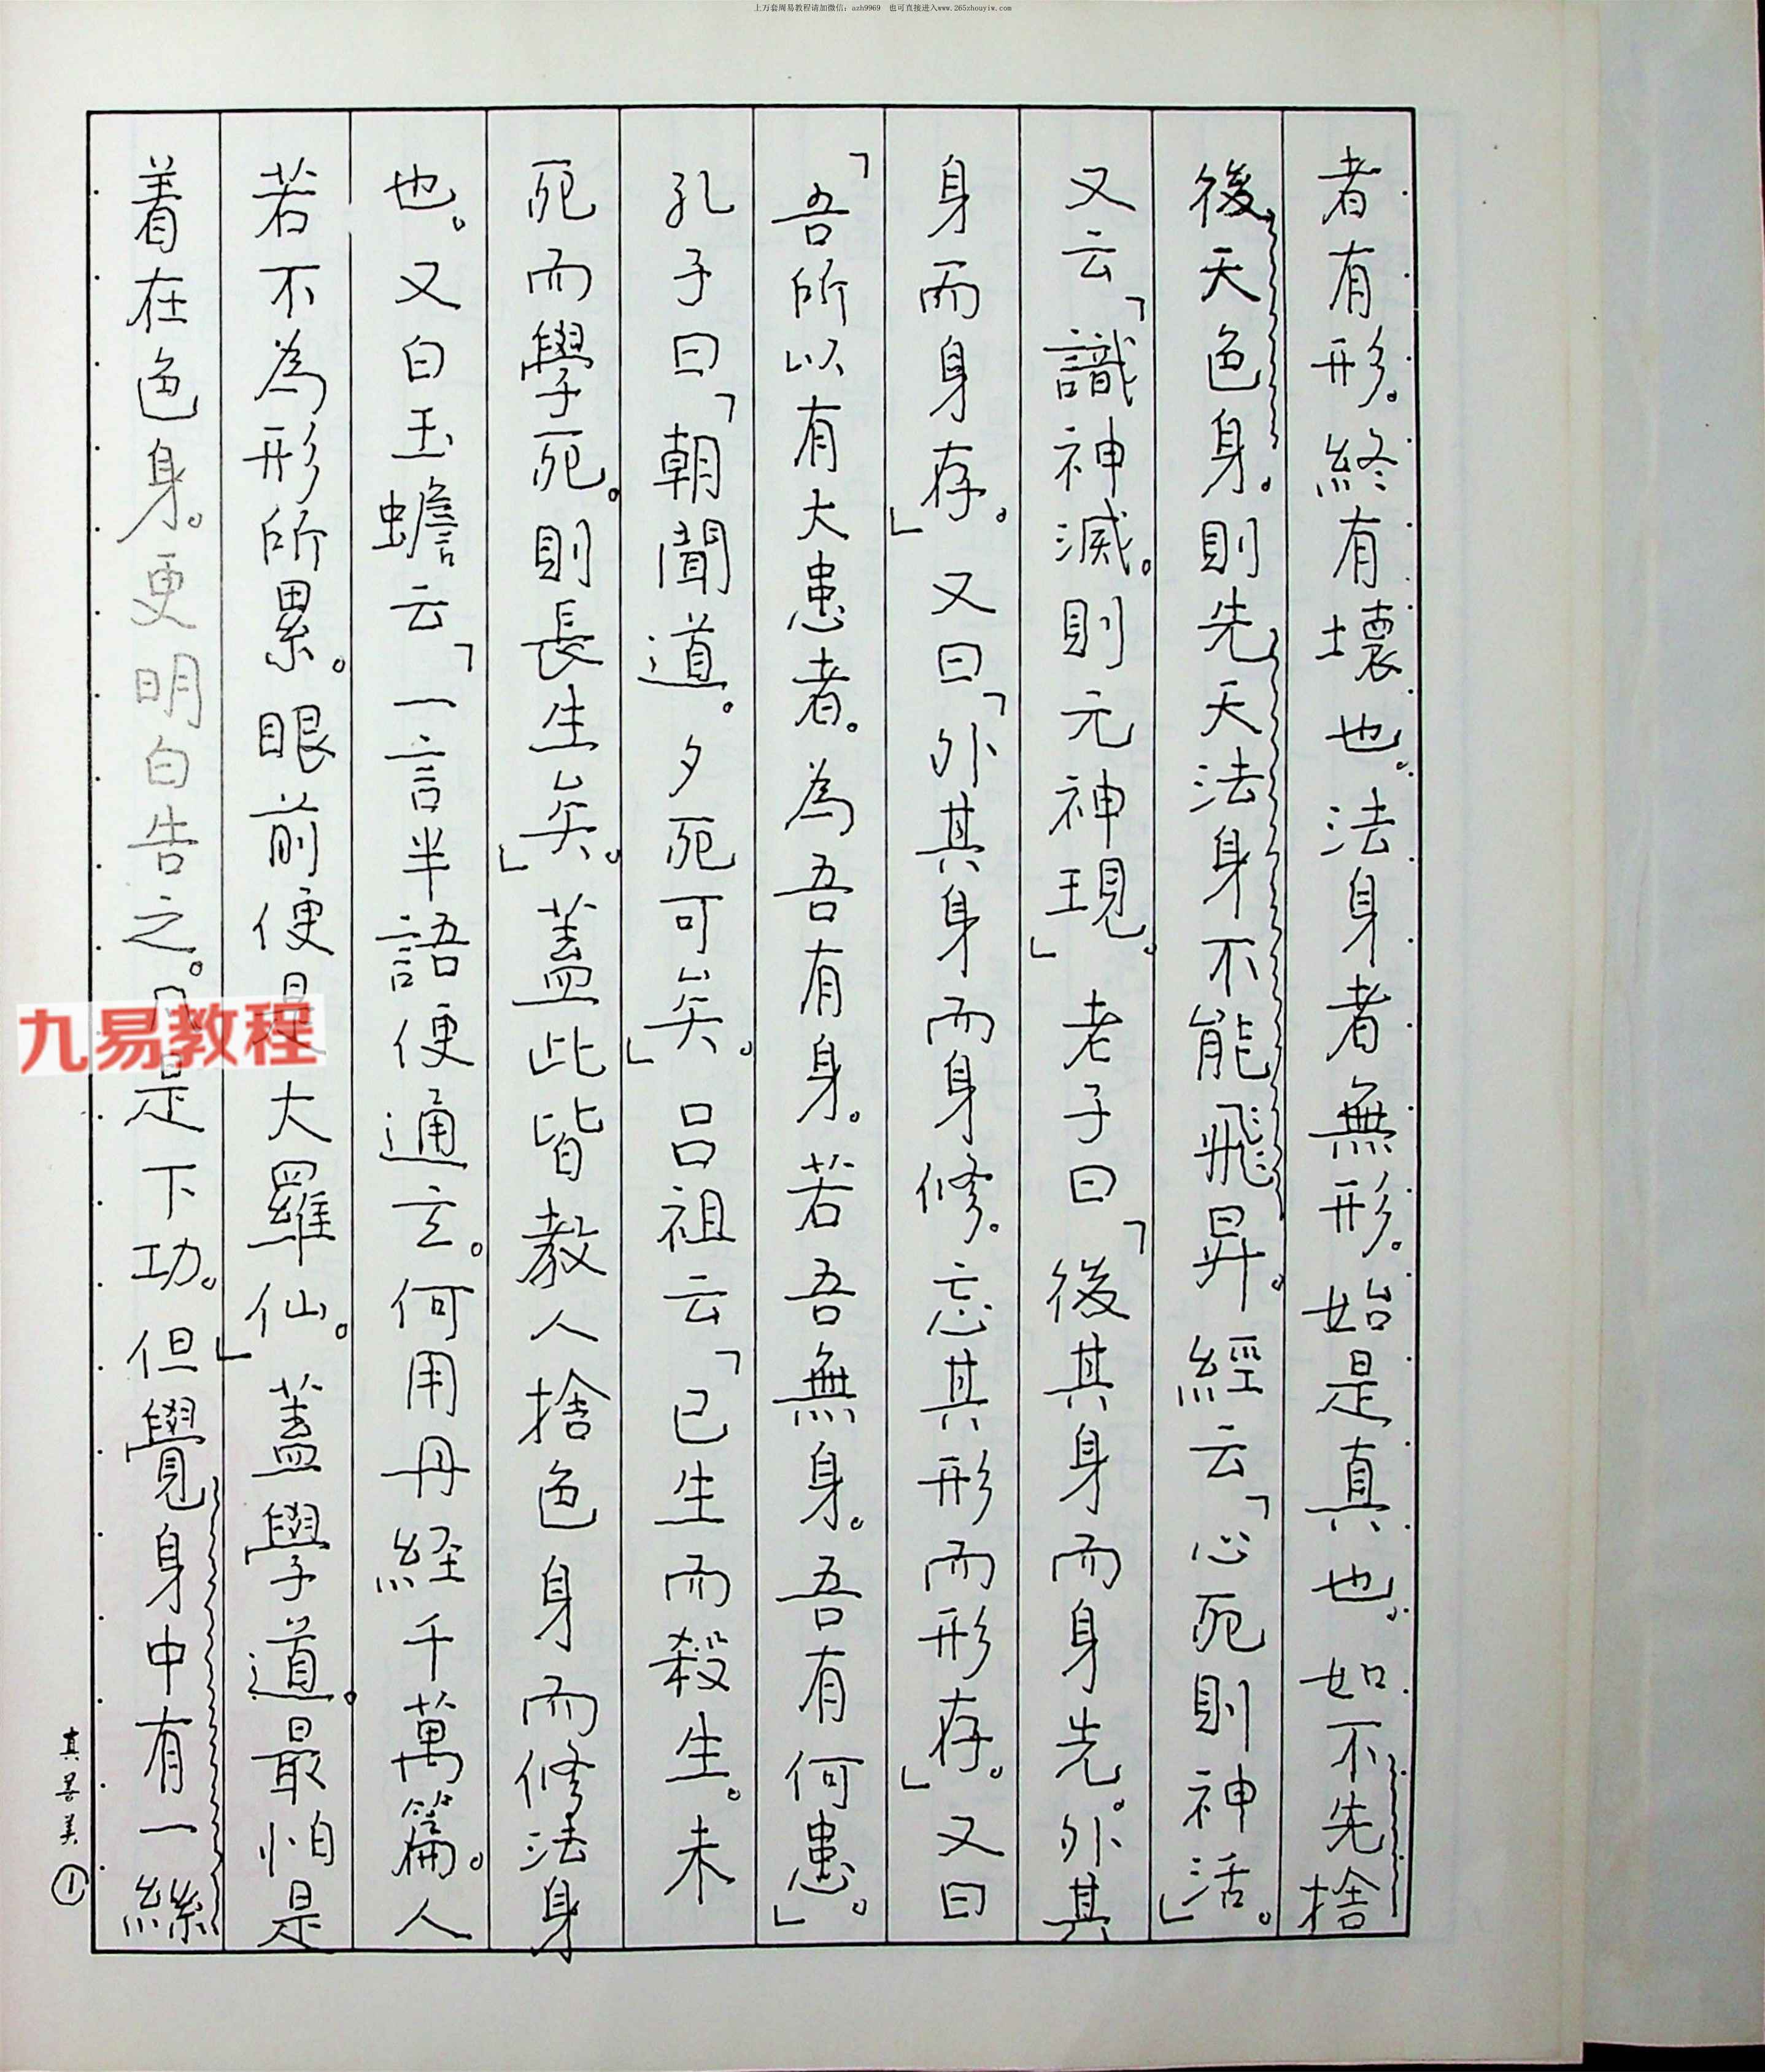 上万套周易教程请加微信：azh9969 也可直接进入www.265zhouyiw.com
者有形。終有壞也。法身者無形。始是真也。如不先捨
後天色身。則先天法身不能飛昇。經云「心死則神活。」
又云「識神滅。則元神現。」老子曰「後其身而身先。外其
身而身存。」又曰「外其身而身修。忘其形而形存。」又曰
「吾所以有大患者。為吾有身。若吾無身。吾有何患。」
孔子曰「朝聞道。夕死可矣。」呂祖云「已生而殺生。未
死而學死。則長生矣。」蓋此皆教人捨色身而修法身
也。又白玉蟾云「一言半語便通玄。何用丹経千萬篇。人
若不為形所累。眼前便是大羅仙。」蓋學道。最怕是
着在色身。更明白告之。只是下功。但覺身中有一絲
真善美①
九易教程